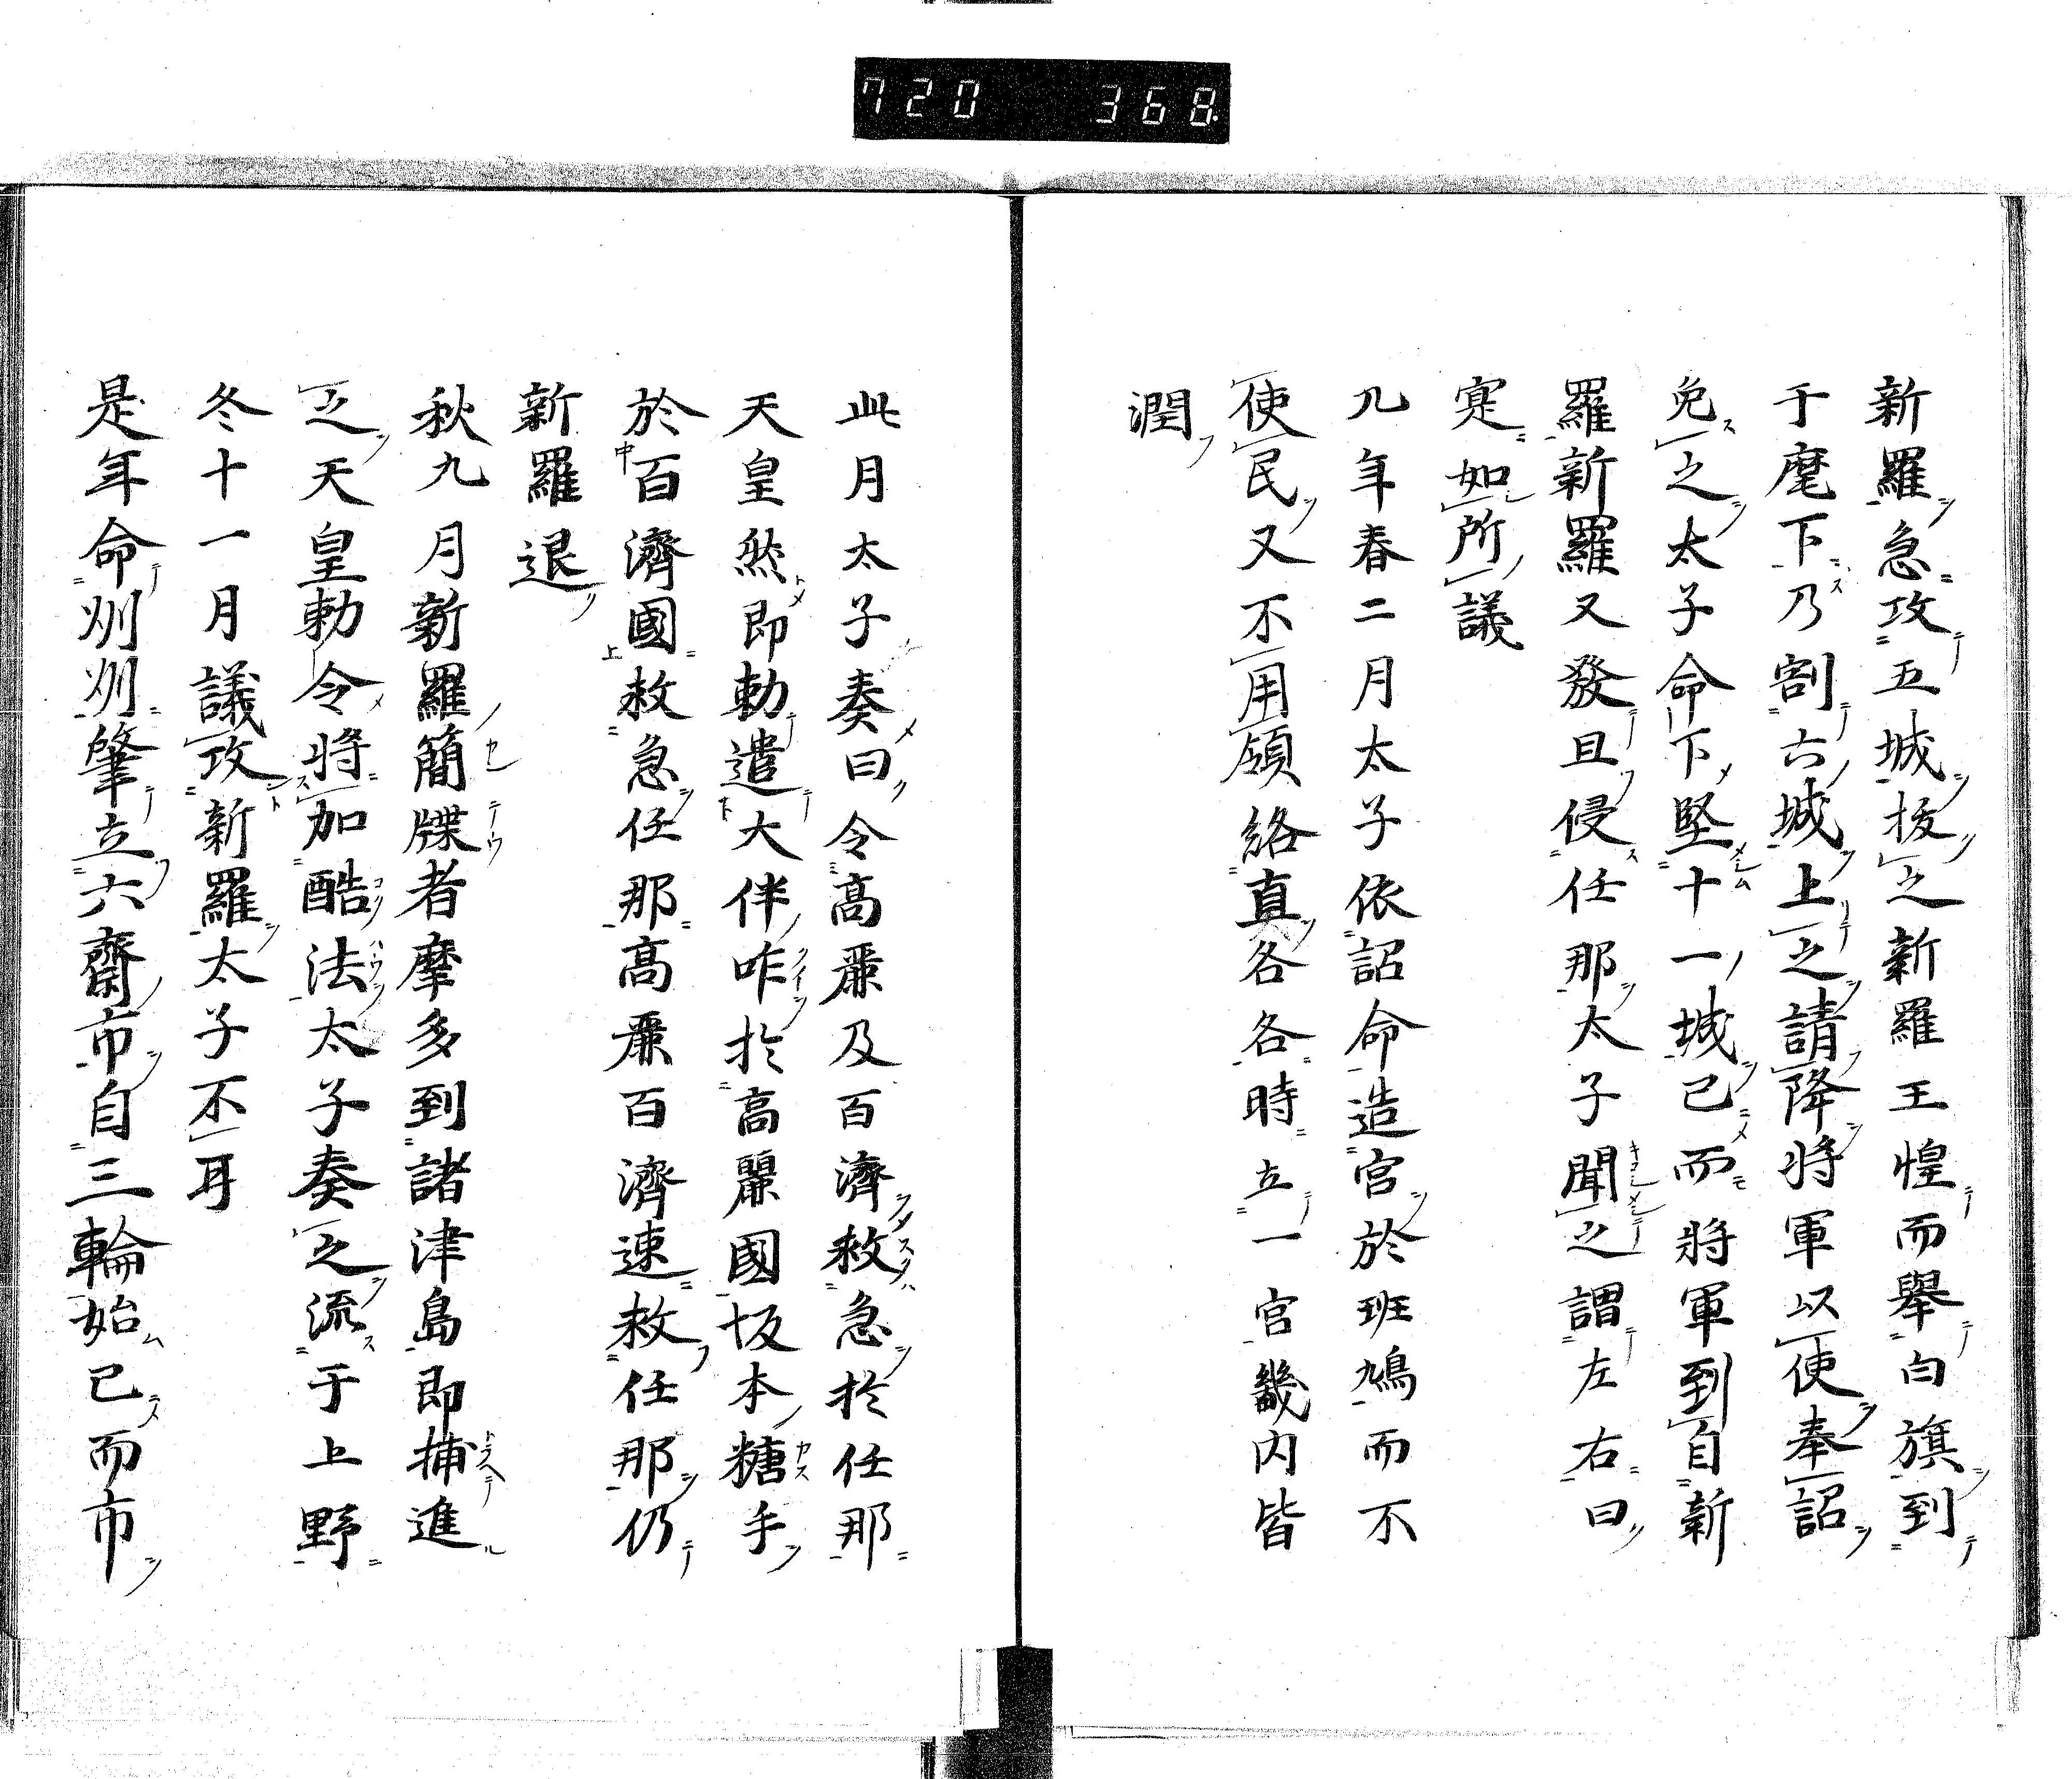 720 368
新羅急攻五城抜之新羅王惶而擧白旗到
于麾下乃割六城上之請降将軍以使奉詔
免之太子命下堅十一城已而將軍到自新
羅新羅又發且侵任那太子聞之謂左右曰
寔如所議
九年春二月太子依詔命造宮於班鳩而不
使民又不用領絡真各各時立一宮畿内皆
潤
此月太子奏曰令高麗及百濟救急於任那
天皇然即勅遣大伴咋於高麗國坂本糖手
於百濟國救急任那高麗百濟速救任那仍
新羅退
秋九月新羅簡牒者摩多到諸津島即捕進
之天皇勅令将加酷法太子奏之流于上野
冬十一月議攻新羅太子不耳
是年命州州肇立六齋市自三輪始已而市